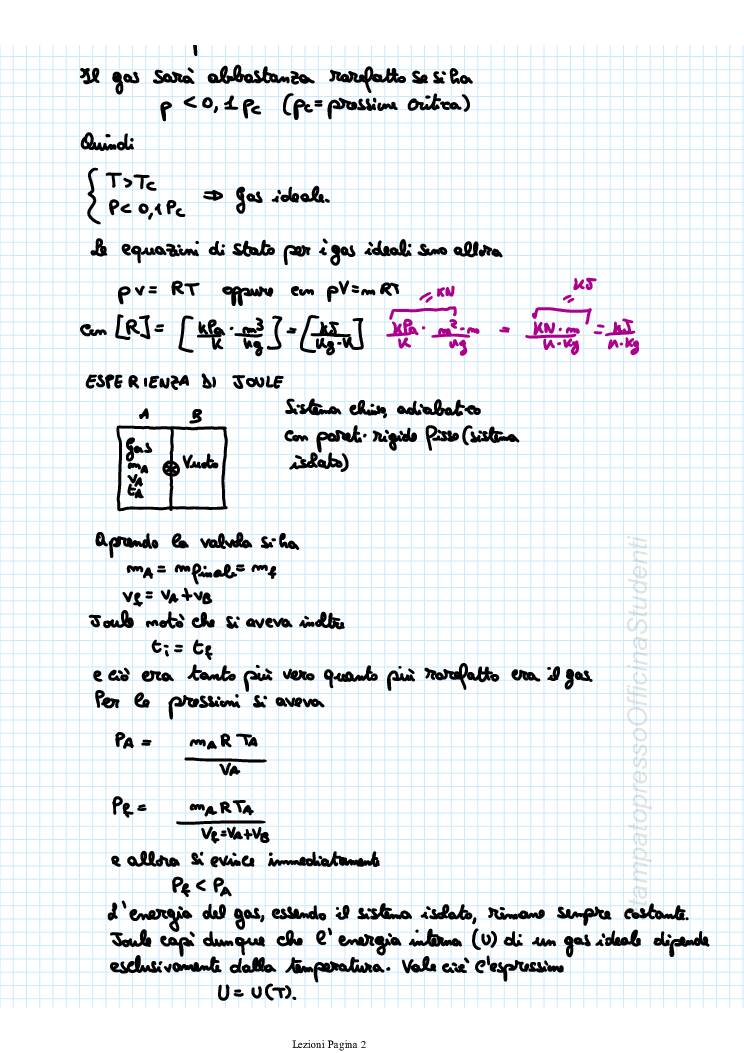 Il gas sarà abbastanza rarefatto se si ha
p < 0,1 pc (pc = pressione critica)
Quindi
{ T > Tc
P < 0,1 Pc ⇒ gas ideale.
Le equazioni di stato per i gas ideali sono allora
pv = RT oppure con pV = mRT
con [R] = [kPa/K · m³/kg] = [kJ/kg·K] kPa/K · m²·m/kg = KN·m/K·kg = kJ/K·kg
= KN
= KJ
ESPERIENZA DI JOULE
A B
Sistema chiuso, adiabatico
con pareti rigide fisse (sistema
isolato)
Gas
mA
VA
tA
Vuoto
Aprendo la valvola si ha
mA = mfinale = mf
Vf = VA + VB
Joule notò che si aveva inoltre
ti = tf
e ciò era tanto più vero quanto più rarefatto era il gas
Per le pressioni si aveva
PA = mA R TA / VA
Pf = mA R TA / Vf = VA + VB
e allora si evince immediatamente
Pf < PA
L'energia del gas, essendo il sistema isolato, rimane sempre costante.
Joule capì dunque che l'energia interna (U) di un gas ideale dipende
esclusivamente dalla temperatura. Vale cioè l'espressione
U = U(T).
tampatopressoOfficinaStudenti
Lezioni Pagina 2